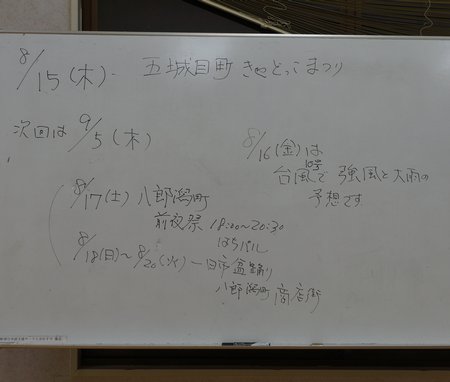 8/15(木). 五城目町 きゃどっこまつり
次回は 9/5(木)
8/16(金)は
台風10号で 強風と大雨の
予想です
8/17(土) 八郎潟町
前夜祭 18:00~20:30
はちパル
8/18(日)~8/20(火) 一日市盆踊り
八郎潟町 商店街